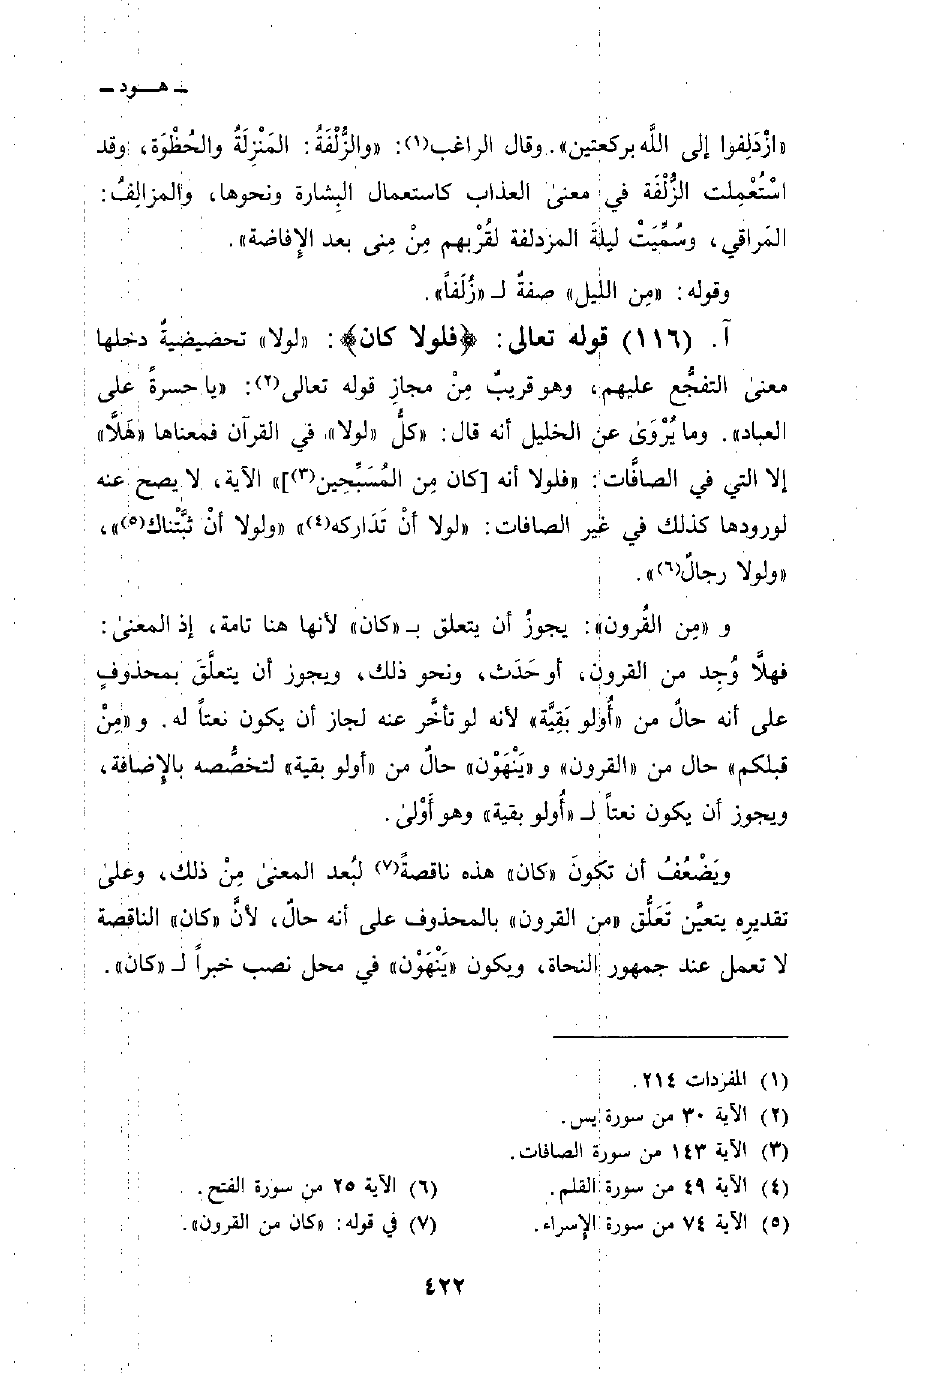 ـ هـــود ـ
«ازْدَلِفوا إلى اللَّه بركعتين». وقال الراغب(١): «والزُّلْفَةُ: المَنْزِلَةُ والحُظْوَة، وقد
اسْتُعْمِلت الزُّلْفَة في معنىٰ العذاب كاستعمال البِشارة ونحوها، والمزالِفُ:
المَراقي، وسُمِّيَتْ ليلةَ المزدلفة لقُرْبهم مِنْ مِنى بعد الإِفاضة».
وقوله: «مِن الليل» صفةٌ لـ «زُلَفاً».
آ. (١١٦) قوله تعالى: ﴿فلولا كان﴾: «لولا» تحضيضيةٌ دخلها
معنىٰ التفجُّع عليهم، وهو قريبٌ مِنْ مجازِ قوله تعالى(٢): «يا حسرةً على
العباد». وما يُرْوَىٰ عن الخليل أنه قال: «كلُّ «لولا» في القرآن فمعناها «هَلَّا»
إلا التي في الصافَّات: «فلولا أنه [كان مِن المُسَبِّحين(٣)]» الآية، لا يصح عنه
لورودها كذلك في غير الصافات: «لولا أنْ تَدَاركه(٤)» «ولولا أنْ ثبَّتْناك(٥)»،
«ولولا رجالٌ(٦)».
و «مِن القُرون»: يجوزُ أن يتعلق بـ «كان» لأنها هنا تامة، إذ المعنىٰ:
فهلَّا وُجِد من القرون، أو حَدَث، ونحو ذلك، ويجوز أن يتعلَّقَ بمحذوفٍ
على أنه حالٌ من «أُولو بَقِيَّة» لأنه لو تأخَّر عنه لجاز أن يكون نعتاً له. و «مِنْ
قبلكم» حال من «القرون» و «يَنْهَوْن» حالٌ من «أولو بقية» لتخصُّصه بالإِضافة،
ويجوز أن يكون نعتاً لـ «أُولو بقية» وهو أَوْلىٰ.
ويَضْعُفُ أن تكونَ «كان» هذه ناقصةً(٧) لبُعد المعنىٰ مِنْ ذلك، وعلىٰ
تقديرِه يتعيَّن تَعَلُّق «من القرون» بالمحذوف على أنه حالٌ، لأنَّ «كان» الناقصة
لا تعمل عند جمهور النحاة، ويكون «يَنْهَوْن» في محل نصب خبراً لـ «كان».
(١) المفردات ٢١٤.
(٢) الآية ٣٠ من سورة يس.
(٣) الآية ١٤٣ من سورة الصافات.
(٤) الآية ٤٩ من سورة القلم.
(٥) الآية ٧٤ من سورة الإسراء.
(٦) الآية ٢٥ من سورة الفتح.
(٧) في قوله: «كان من القرون».
٤٢٢